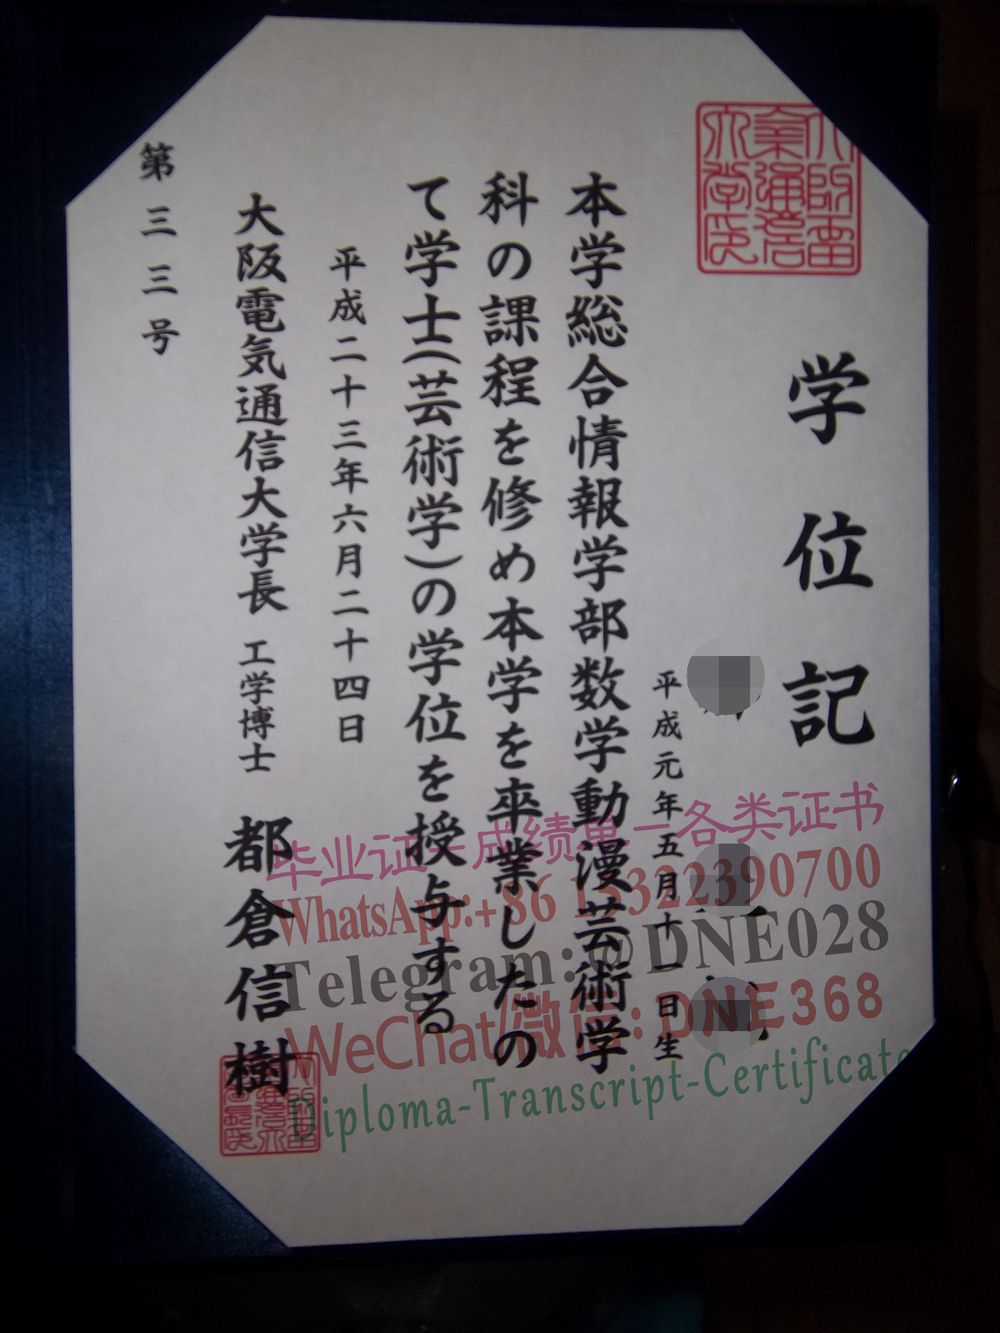 学位記
平成元年五月十一日生
本学総合情報学部数学動漫芸術学
科の課程を修め本学を卒業したの
て学士(芸術学)の学位を授与する
平成二十三年六月二十四日
大阪電気通信大学長 工学博士 都倉信樹
第三三号
毕业证-成绩单-各类证书
WhatsApp:+86 15322390700
Telegram:@DNE028
WeChat/微信: DNE368
Diploma-Transcript-Certificate